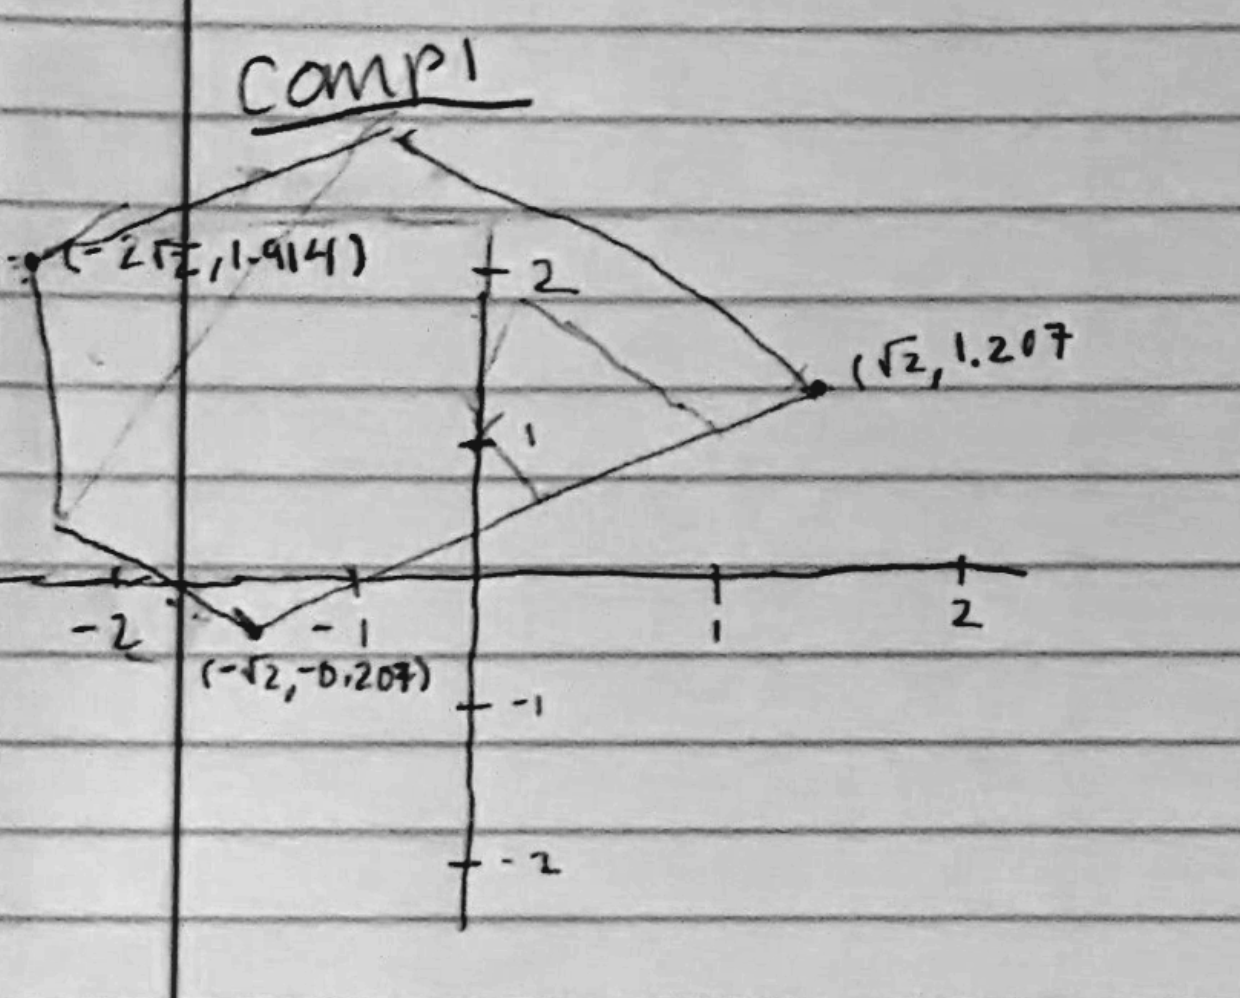 Comp1
(-2√2, 1.914)
2
(√2, 1.207
1
-2
-1
1
2
(-√2, -0.207)
-1
-2